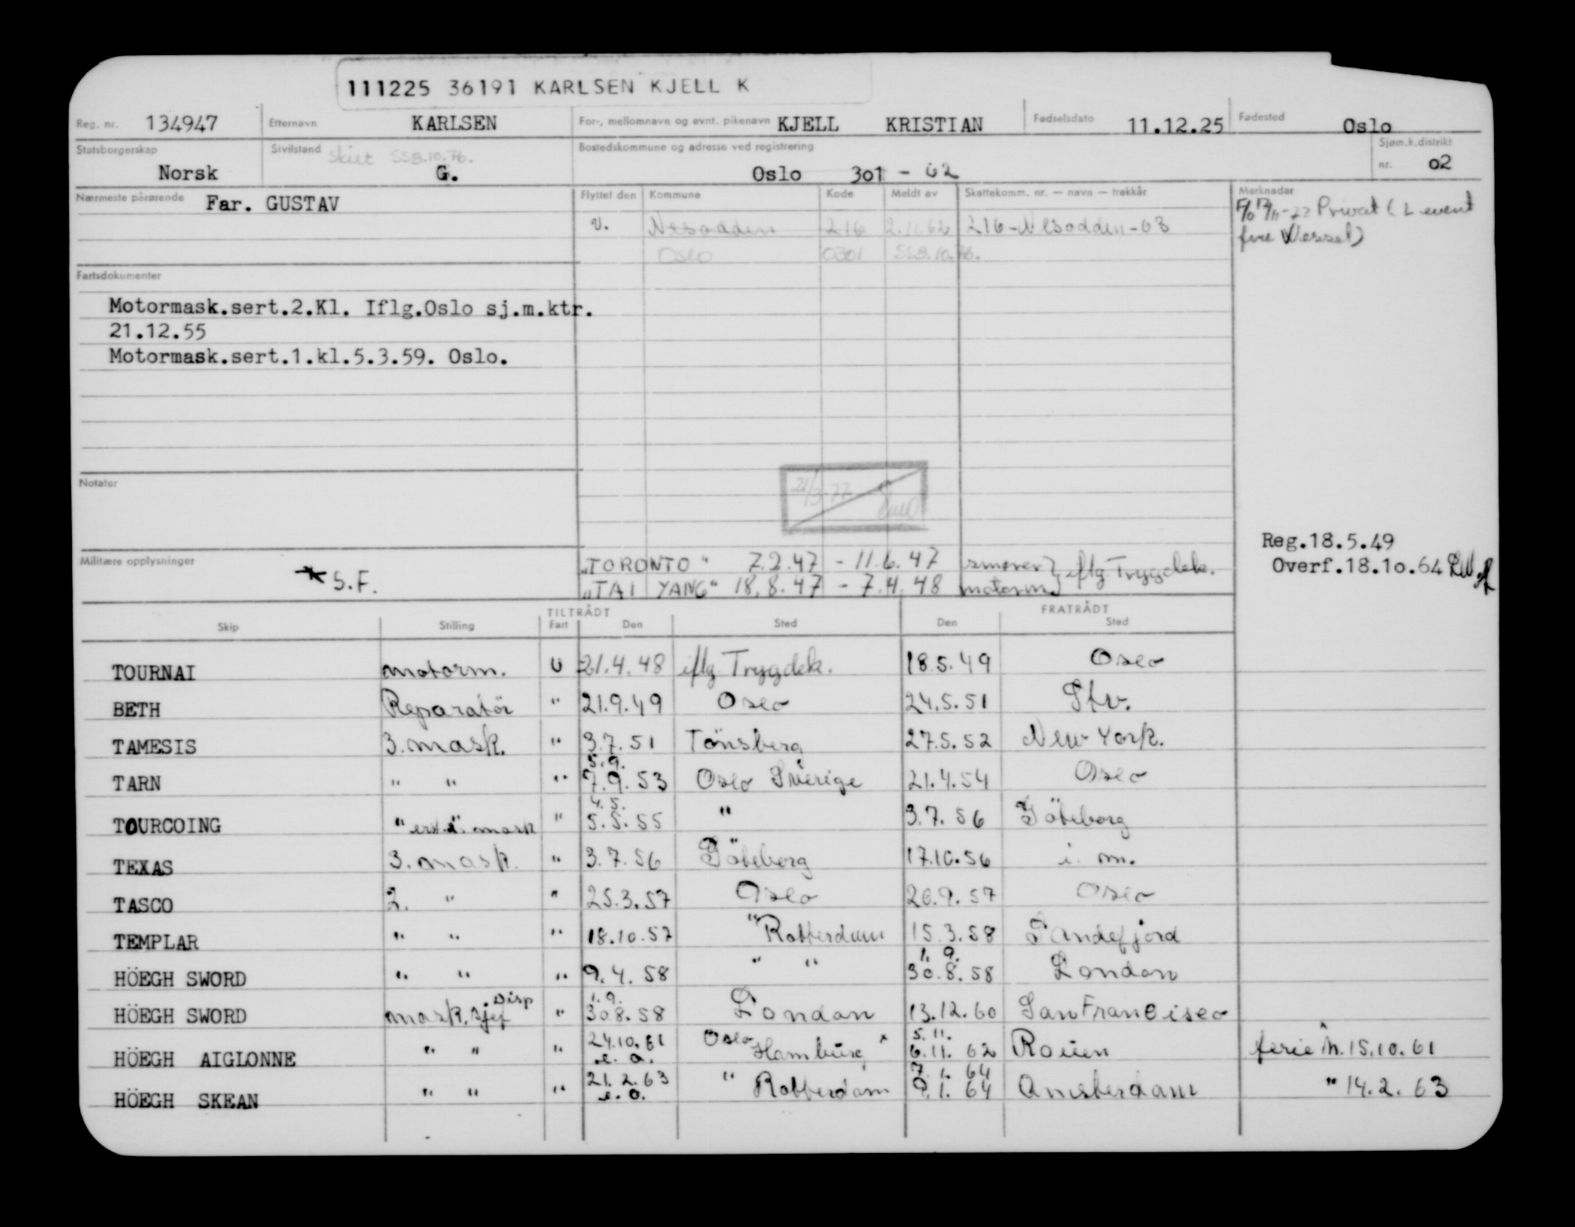 111225 36191 KARLSEN KJELL K
Reg. nr. 134947 Etternavn KARLSEN For-, mellomnavn og evnt. pikenavn KJELL KRISTIAN Fødselsdato 11.12.25 Fødested Oslo
Statsborgerskap Norsk Sivilstand G. Skilt SSB.10.76. Bostedskommune og adresse ved registrering Oslo 301 - 02 Sjøm.k.distrikt nr. 02
Nærmeste pårørende Far. GUSTAV Flyttet den Kommune Kode Meldt av Skattekomm. nr. — navn — trekkår Merknader
U. Nesodden 216 2.11.62 216-Nesodden-63 Privat (L event
Oslo 0301 SSB.10.76. fire Vessel)
Fartsdokumenter
Motormask.sert.2.Kl. Iflg.Oslo sj.m.ktr.
21.12.55
Motormask.sert.1.kl.5.3.59. Oslo.
Notater
21/3-77
Reg.18.5.49
Overf.18.10.64
Militære opplysninger S.F.
"TORONTO" 7.2.47 - 11.6.47 smører
"TAI YANG" 18.8.47 - 7.4.48 motorm. iflg Trygdek.
TILTRÅDT FRATRÅDT
Skip Stilling Fart Den Sted Den Sted
TOURNAI motorm. U 21.4.48 iflg Trygdek. 18.5.49 Oslo
BETH Reparatör " 21.9.49 Oslo 24.5.51 Stv.
TAMESIS 3.mask. " 3.7.51 Tönsberg 27.5.52 New York.
TARN " " " 5.9. 7.9.53 Oslo Sverige 21.4.54 Oslo
TOURCOING " mask " 4.5. 5.5.55 " 3.7.56 Göteborg
TEXAS 3.mask. " 3.7.56 Göteborg 17.10.56 i. m.
TASCO 2. " " 25.3.57 Oslo 26.9.57 Oslo
TEMPLAR " " " 18.10.57 " Rotterdam 15.3.58 Sandefjord
HÖEGH SWORD " " " 9.4.58 " " 1.9. 30.8.58 London
HÖEGH SWORD mask.sjef Disp " 1.9. 30.8.58 London 13.12.60 San Francisco
HÖEGH AIGLONNE " " " 24.10.61 e.o. Oslo Hamburg x 5.11. 6.11.62 Rouen ferie 15.10.61
HÖEGH SKEAN " " " 21.2.63 e.o. " Rotterdam 7.1.64 9.1.64 Amsterdam " 14.2.63